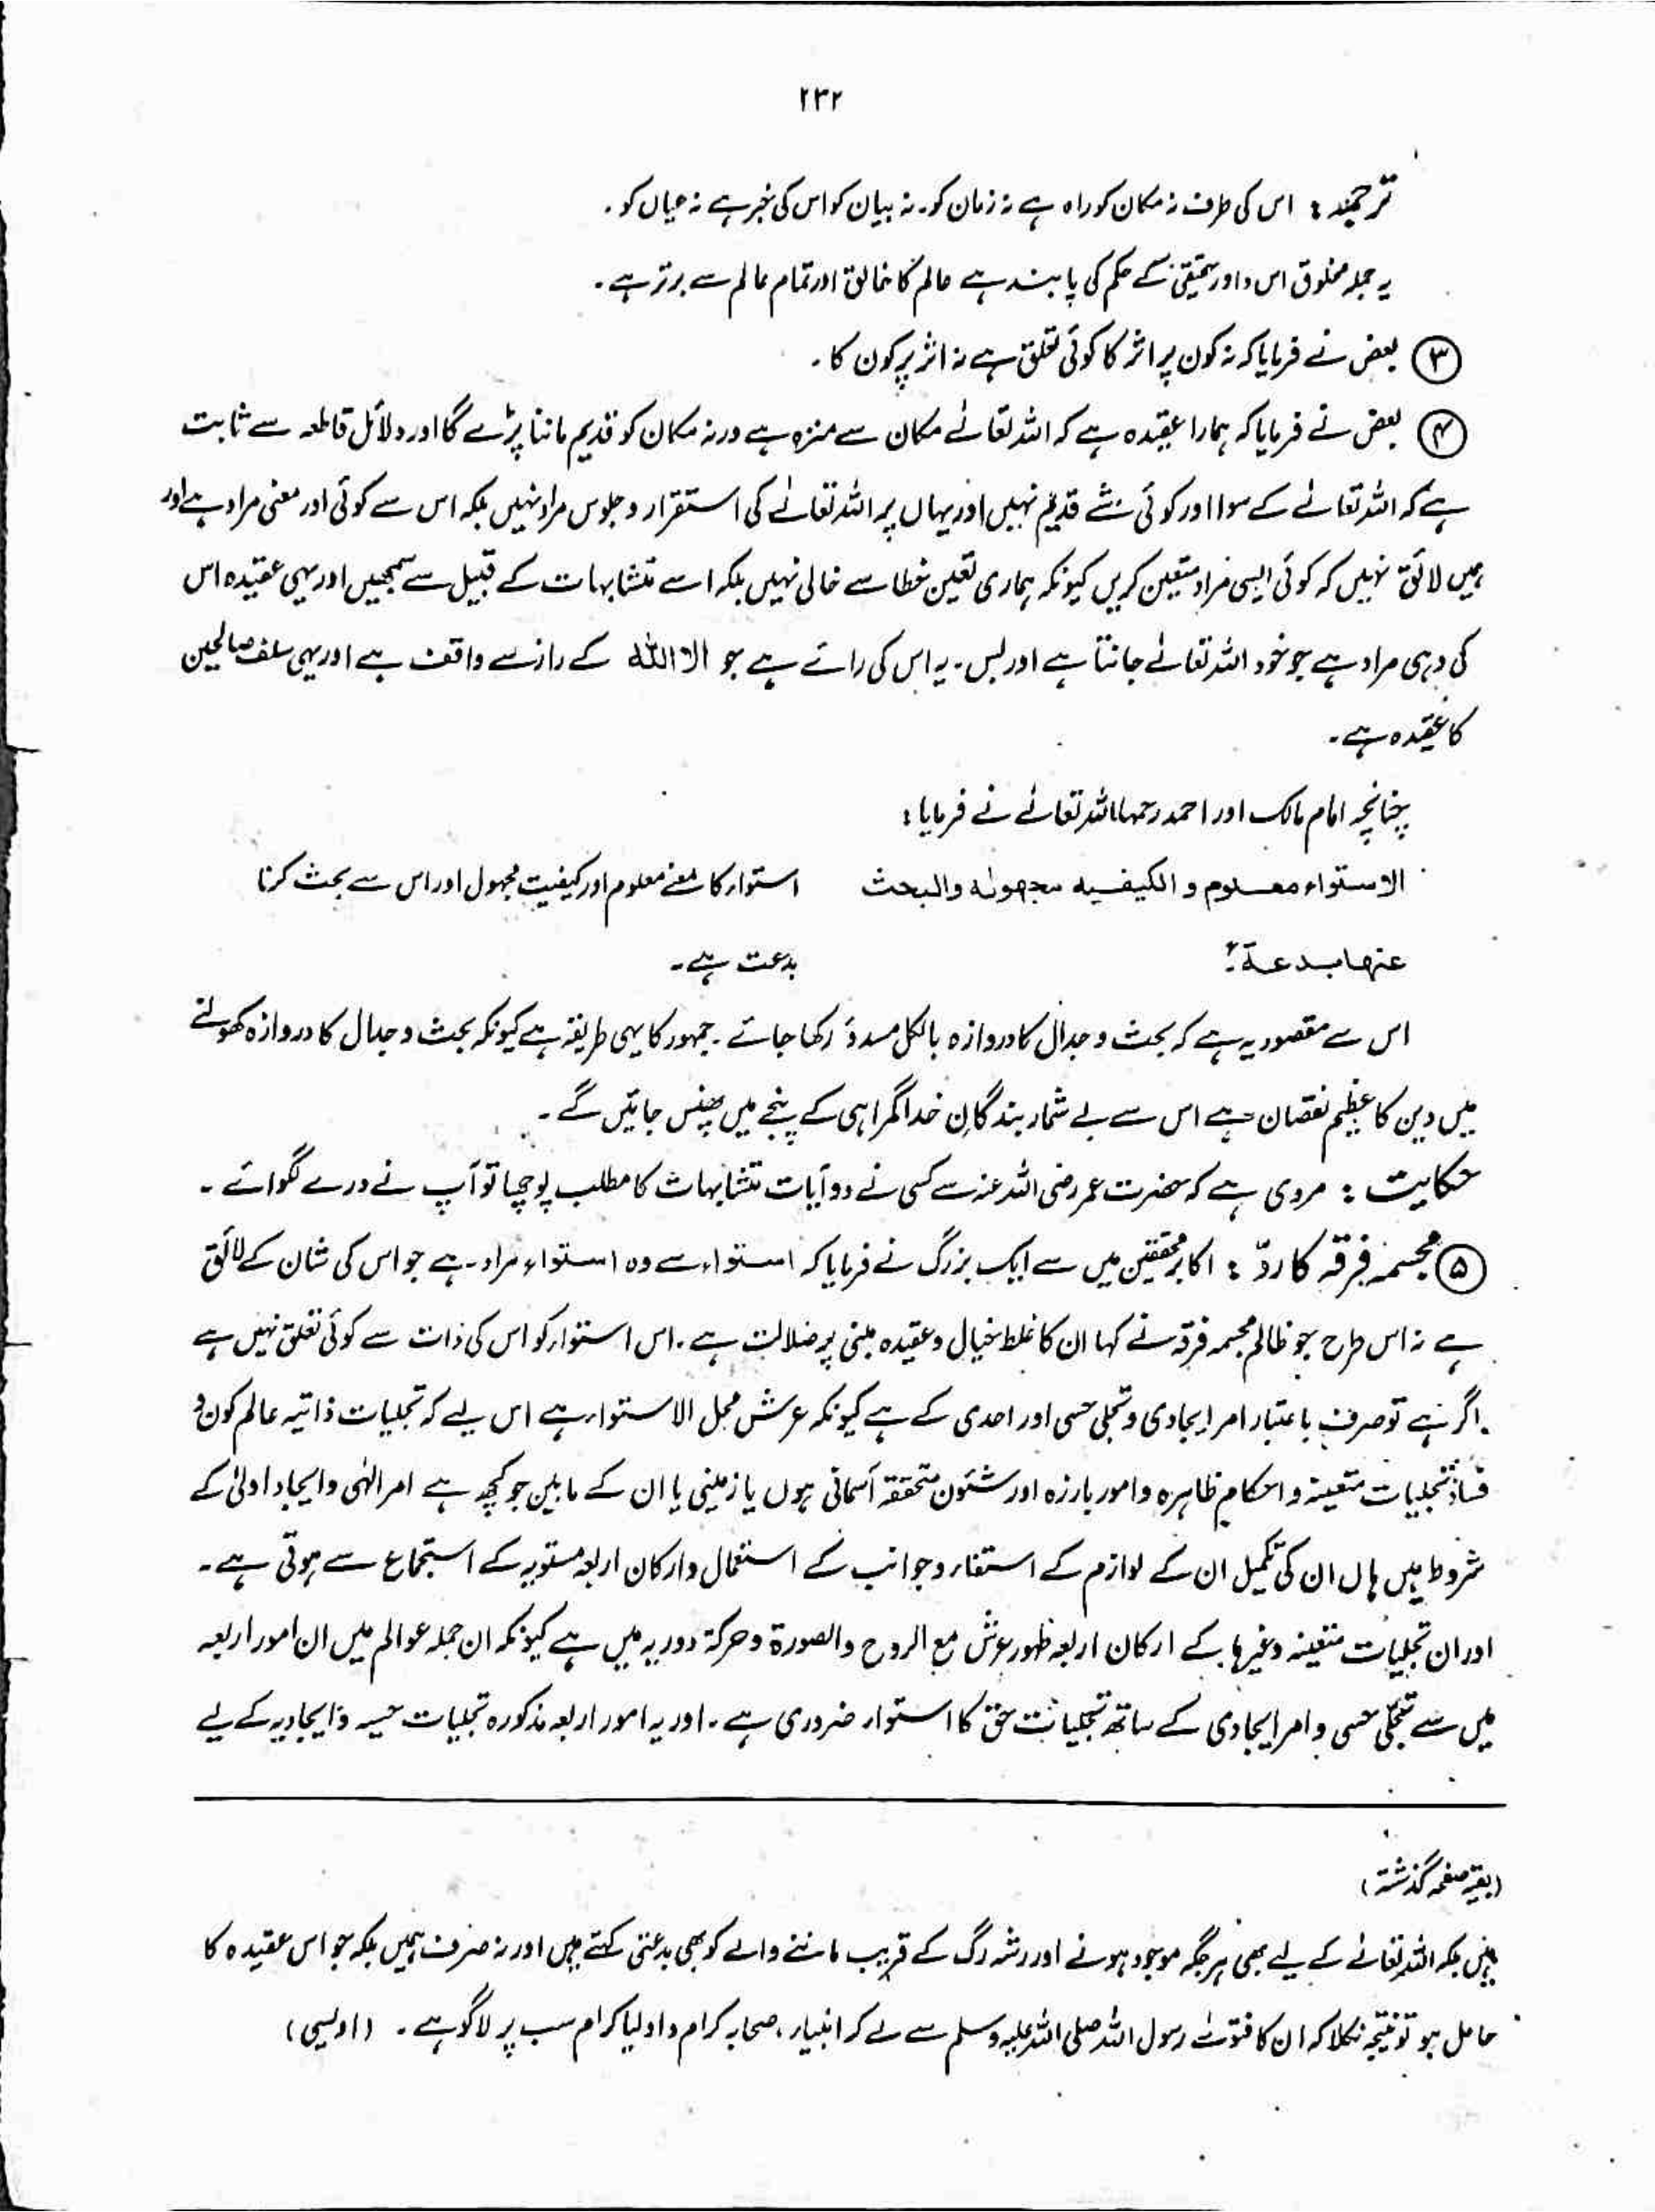 ۲۳۲
ترجمہ : اس کی طرف نہ مکان کو راہ ہے نہ زمان کو۔ نہ بیان کو اس کی خبر ہے نہ عیاں کو۔
یہ جملہ مخلوق اس داور حقیقی کے حکم کی پابند ہے عالم کا خالق اور تمام عالم سے برتر ہے۔
③ بعض نے فرمایا کہ نہ کون پر اثر کا کوئی تعلق ہے نہ اثر پر کون کا۔
④ بعض نے فرمایا کہ ہمارا عقیدہ ہے کہ اللہ تعالےٰ مکان سے منزہ ہے ورنہ مکان کو قدیم ماننا پڑے گا اور دلائل قاطعہ سے ثابت
ہے کہ اللہ تعالےٰ کے سوا اور کوئی شے قدیم نہیں اور یہاں پر اللہ تعالےٰ کی استقرار و جلوس مراد نہیں بلکہ اس سے کوئی اور معنی مراد ہے اور
ہمیں لائق نہیں کہ کوئی ایسی مراد متعین کریں کیونکہ ہماری تعین خطا سے خالی نہیں بلکہ اسے متشابہات کے قبیل سے سمجھیں اور یہی عقیدہ اس
کی وہی مراد ہے جو خود اللہ تعالےٰ جانتا ہے اور بس۔ یہ اس کی رائے ہے جو الا اللہ کے راز سے واقف ہے اور یہی سلف صالحین
کا عقیدہ ہے۔
چنانچہ امام مالک اور احمد رحمہما اللہ تعالےٰ نے فرمایا :
الاستواء معلوم و الکیفیہ مجھولہ والبحث استواء کا معنے معلوم اور کیفیت مجہول اور اس سے بحث کرنا
عنہا بدعۃ؛ بدعت ہے۔
اس سے مقصود یہ ہے کہ بحث و جدال کا دروازہ بالکل مسدود رکھا جائے۔ جمہور کا یہی طریقہ ہے کیونکہ بحث و جدال کا دروازہ کھولنے
میں دین کا عظیم نقصان ہے اس سے بے شمار بندگانِ خدا گمراہی کے پنجے میں پھنس جائیں گے۔
حکایت : مروی ہے کہ حضرت عمر رضی اللہ عنہ سے کسی نے دو آیات متشابہات کا مطلب پوچھا تو آپ نے درے لگوائے۔
⑤ مجسمہ فرقہ کا ردّ : اکابر محققین میں سے ایک بزرگ نے فرمایا کہ استواء سے وہ استواء مراد ہے جو اس کی شان کے لائق
ہے نہ اس طرح جو ظالم مجسمہ فرقہ نے کہا ان کا غلط خیال و عقیدہ مبنی پر ضلالت ہے۔ اس استواء کو اس کی ذات سے کوئی تعلق نہیں ہے
اگر ہے تو صرف باعتبار امر ایجادی و تجلی حسی اور احدی کے ہے کیونکہ عرش محل الاستواء ہے اس لیے کہ تجلیات ذاتیہ عالم کون و
فساد تجلیات متعینہ و احکام ظاہرہ و امور بارزہ اور شئون متحققہ آسمانی ہوں یا زمینی یا ان کے مابین جو کچھ ہے امر الٰہی و ایجاد اولیٰ کے
شروط ہیں ہاں ان کی تکمیل ان کے لوازم کے استفاء و جوانب کے استعمال و ارکان اربعہ مستویہ کے استجماع سے ہوتی ہے۔
اور ان تجلیات متعینہ وغیرہا کے ارکان اربعہ ظہور عرش مع الروح والصورۃ و حرکۃ دوریہ میں ہے کیونکہ ان جملہ عوالم میں ان امور اربعہ
میں سے تجلی حسی و امر ایجادی کے ساتھ تجلیات حق کا استواء ضروری ہے۔ اور یہ امور اربعہ مذکورہ تجلیات حسیہ و ایجادیہ کے لیے
(بقیہ صفحہ گذشتہ)
ہیں بلکہ اللہ تعالےٰ کے لیے بھی ہر جگہ موجود ہونے اور رشہ رگ کے قریب ماننے والے کو بھی بدعتی کہتے ہیں اور نہ صرف ہمیں بلکہ جو اس عقیدہ کا
حامل ہو تو نتیجہ نکلا کہ ان کا فتویٰ رسول اللہ صلی اللہ علیہ وسلم سے لے کر انبیاء، صحابہ کرام و اولیا کرام سب پر لاگو ہے۔ (اویسی)